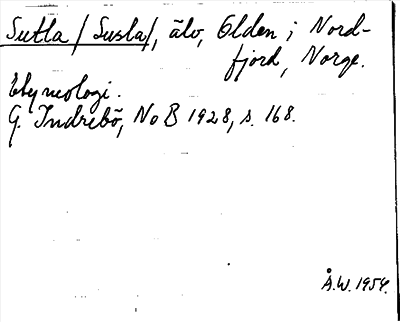 Sutla / Susla/, älv, Olden i Nord-
fjord, Norge.
Etymologi.
G. Indrebö, NoB 1928, s. 168.
Å.W. 1954.